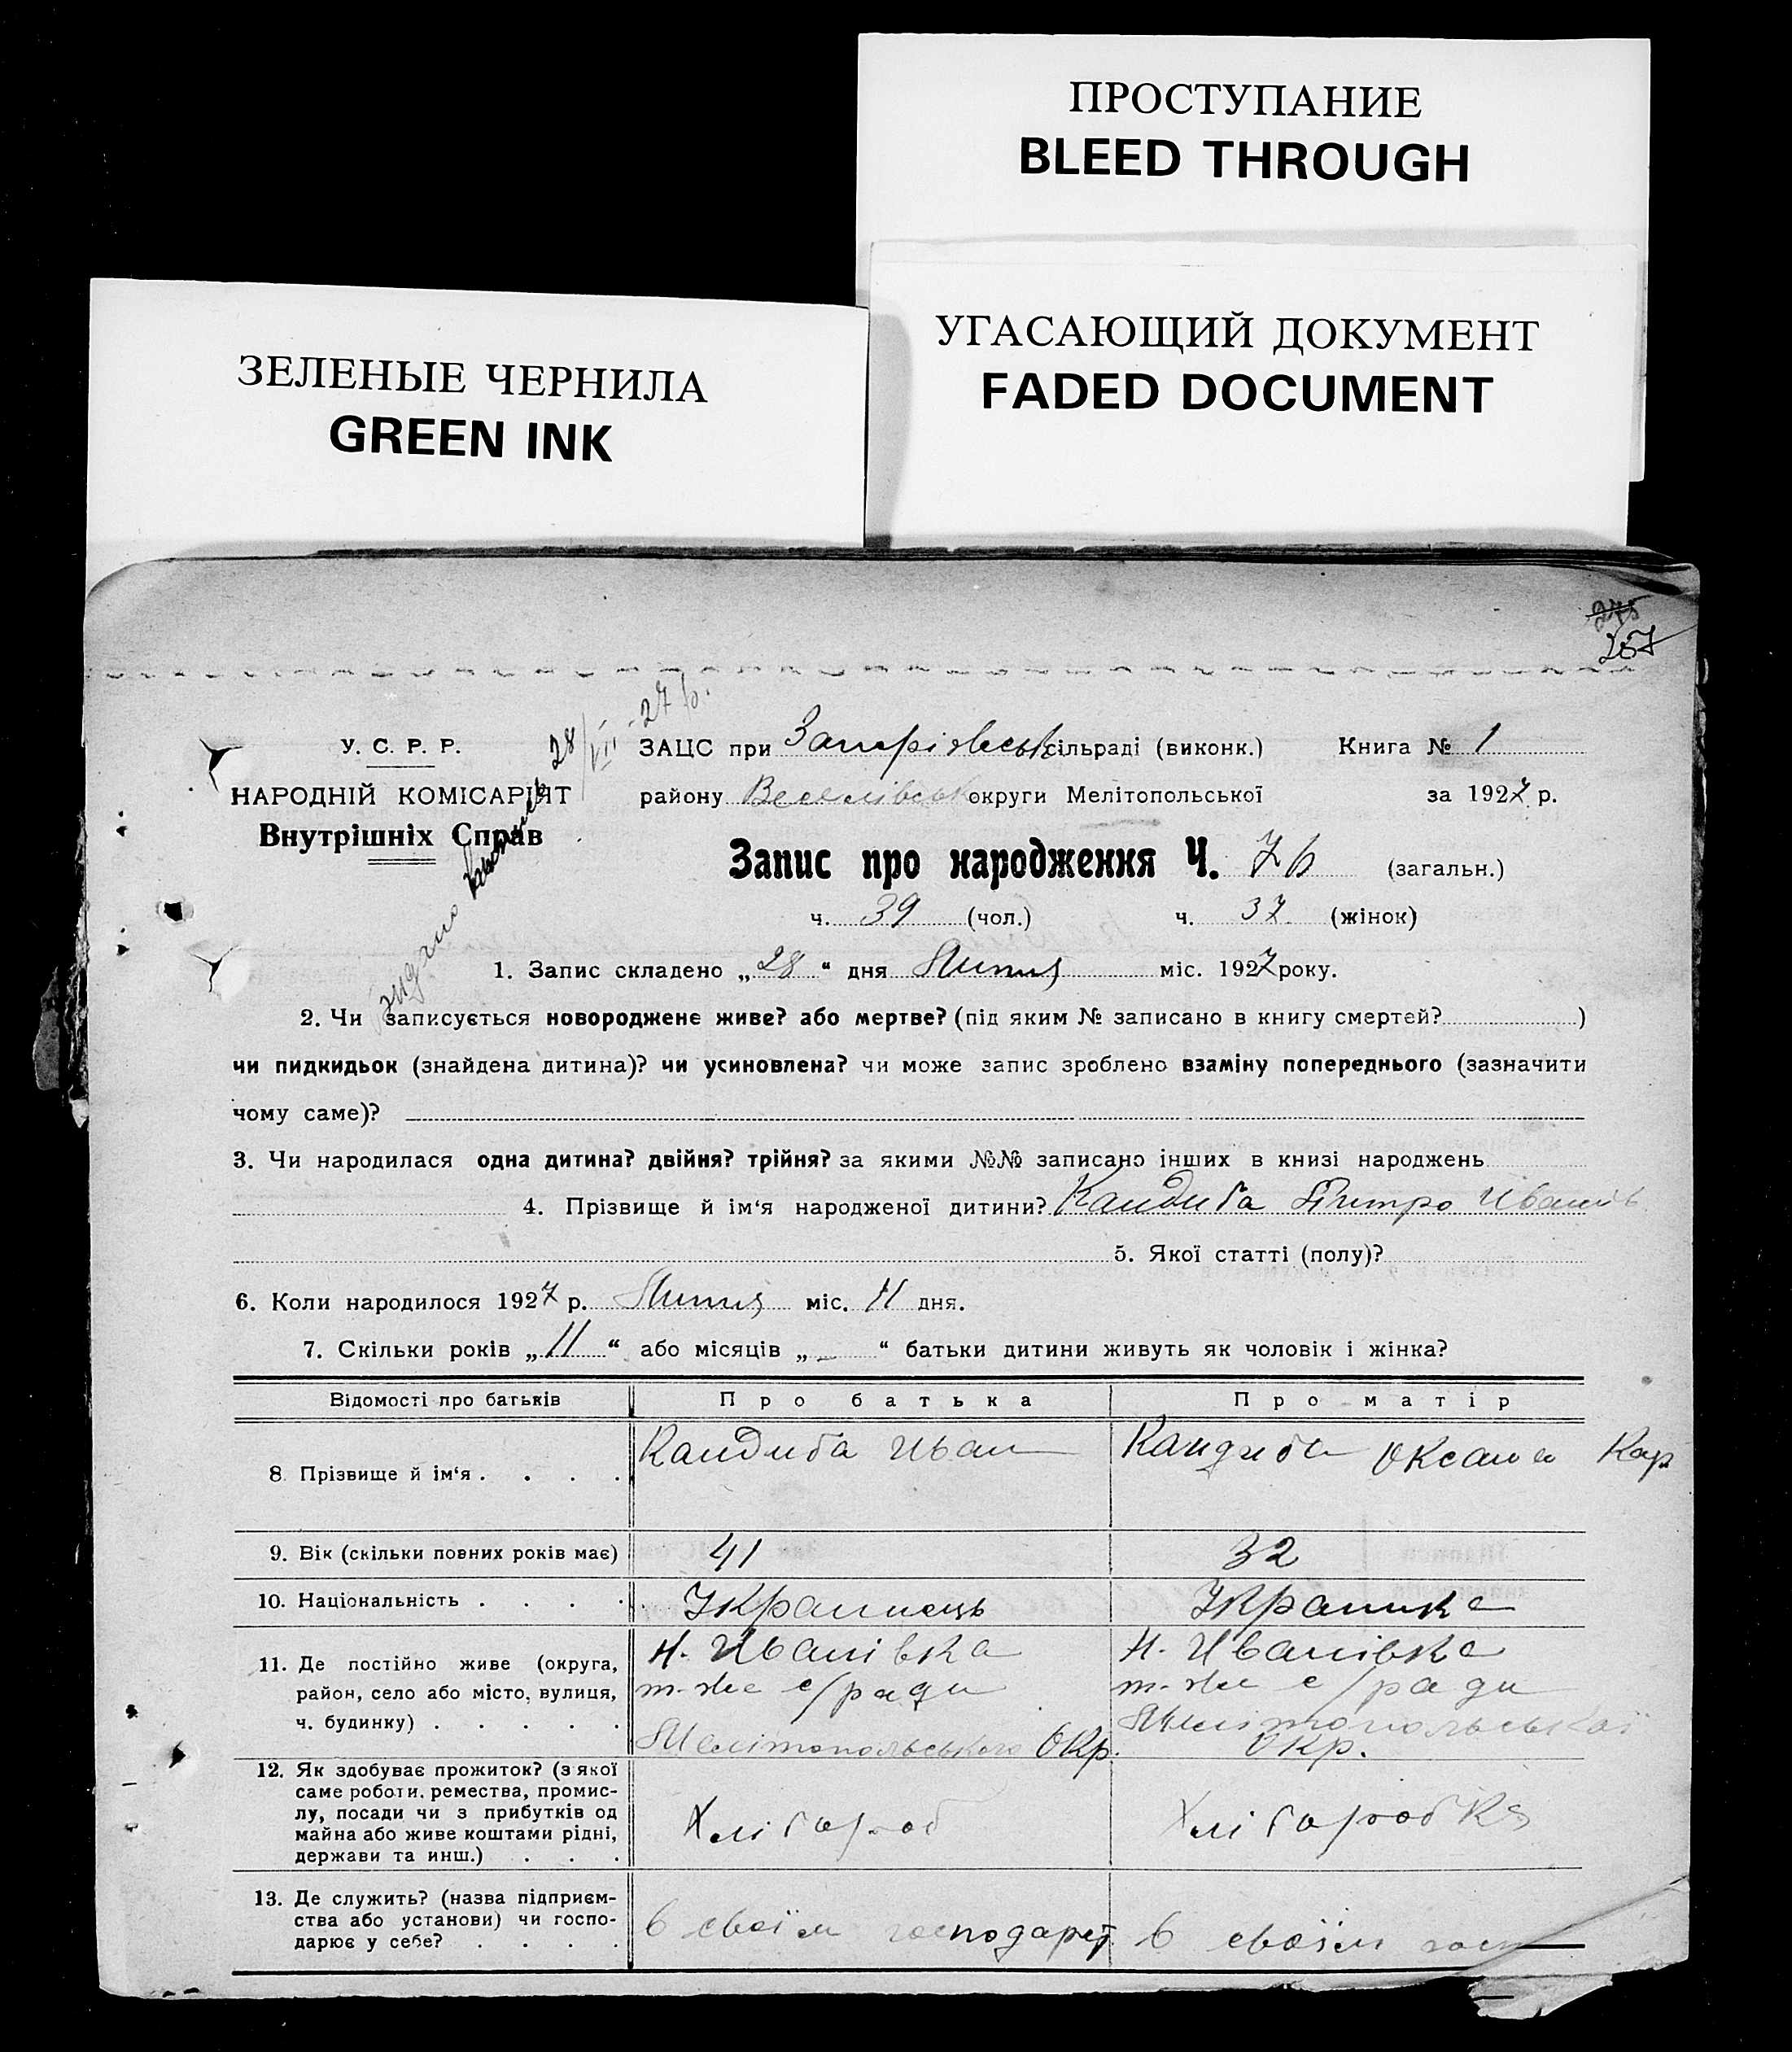 ПРОСТУПАНИЕ
BLEED THROUGH
УГАСАЮЩИЙ ДОКУМЕНТ
FADED DOCUMENT
ЗЕЛЕНЫЕ ЧЕРНИЛА
GREEN INK
275
257
28/VII-27 р.
У. С. Р. Р.
НАРОДНІЙ КОМІСАРІЯТ
Внутрішніх Справ
ЗАЦС при сільраді (виконк.) Книга № 1
району Веселівськ округи Мелітопольської за 1927 р.
Запис про народження Ч. 76 (загальн.)
ч. 39 (чол.) ч. 37 (жінок)
1. Запис складено „28“ дня Липня міс. 1927 року.
2. Чи записується новороджене живе? або мертве? (під яким № записано в книгу смертей? )
чи пидкидьок (знайдена дитина)? чи усиновлена? чи може запис зроблено взаміну попереднього (зазначити
чому саме)?
3. Чи народилася одна дитина? двійня? трійня? за якими №№ записано інших в книзі народжень
4. Прізвище й ім‘я народженої дитини? Кандиба Дмитро Іванів
5. Якої статті (полу)?
6. Коли народилося 1927 р. Липня міс. 11 дня.
7. Скільки років „11“ або місяців „-“ батьки дитини живуть як чоловік і жінка?
Відомості про батьків Про батька Про матір
8 Прізвище й ім‘я . . . . Кандиба Иван Кандиба Оксана Кар
9. Вік (скільки повних років має) 41 32
10. Національність . . . . Українець Українка
11. Де постійно живе (округа, район, село або місто, вулиця, ч. будинку) . . . . .
Н. Иванівка
т-же с/ради
Мелітопольського Окр.
Н. Иванівка
т-же с/ради
Мелітопольської
Окр.
12. Як здобуває прожиток? (з якої саме роботи, ремества, промислу, посади чи з прибутків од майна або живе коштами рідні, держави та инш.) . . .
Хлібороб Хліборобка
13. Де служить? (назва підприємства або установи) чи господарює у себе? . . . .
в своїм господарст в своїм госп